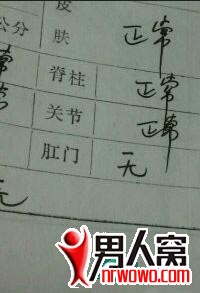 公分
皮
肤
正常
常
脊柱
正常
关节
正常
肛门
无
无
男人窝
nrwowo.com